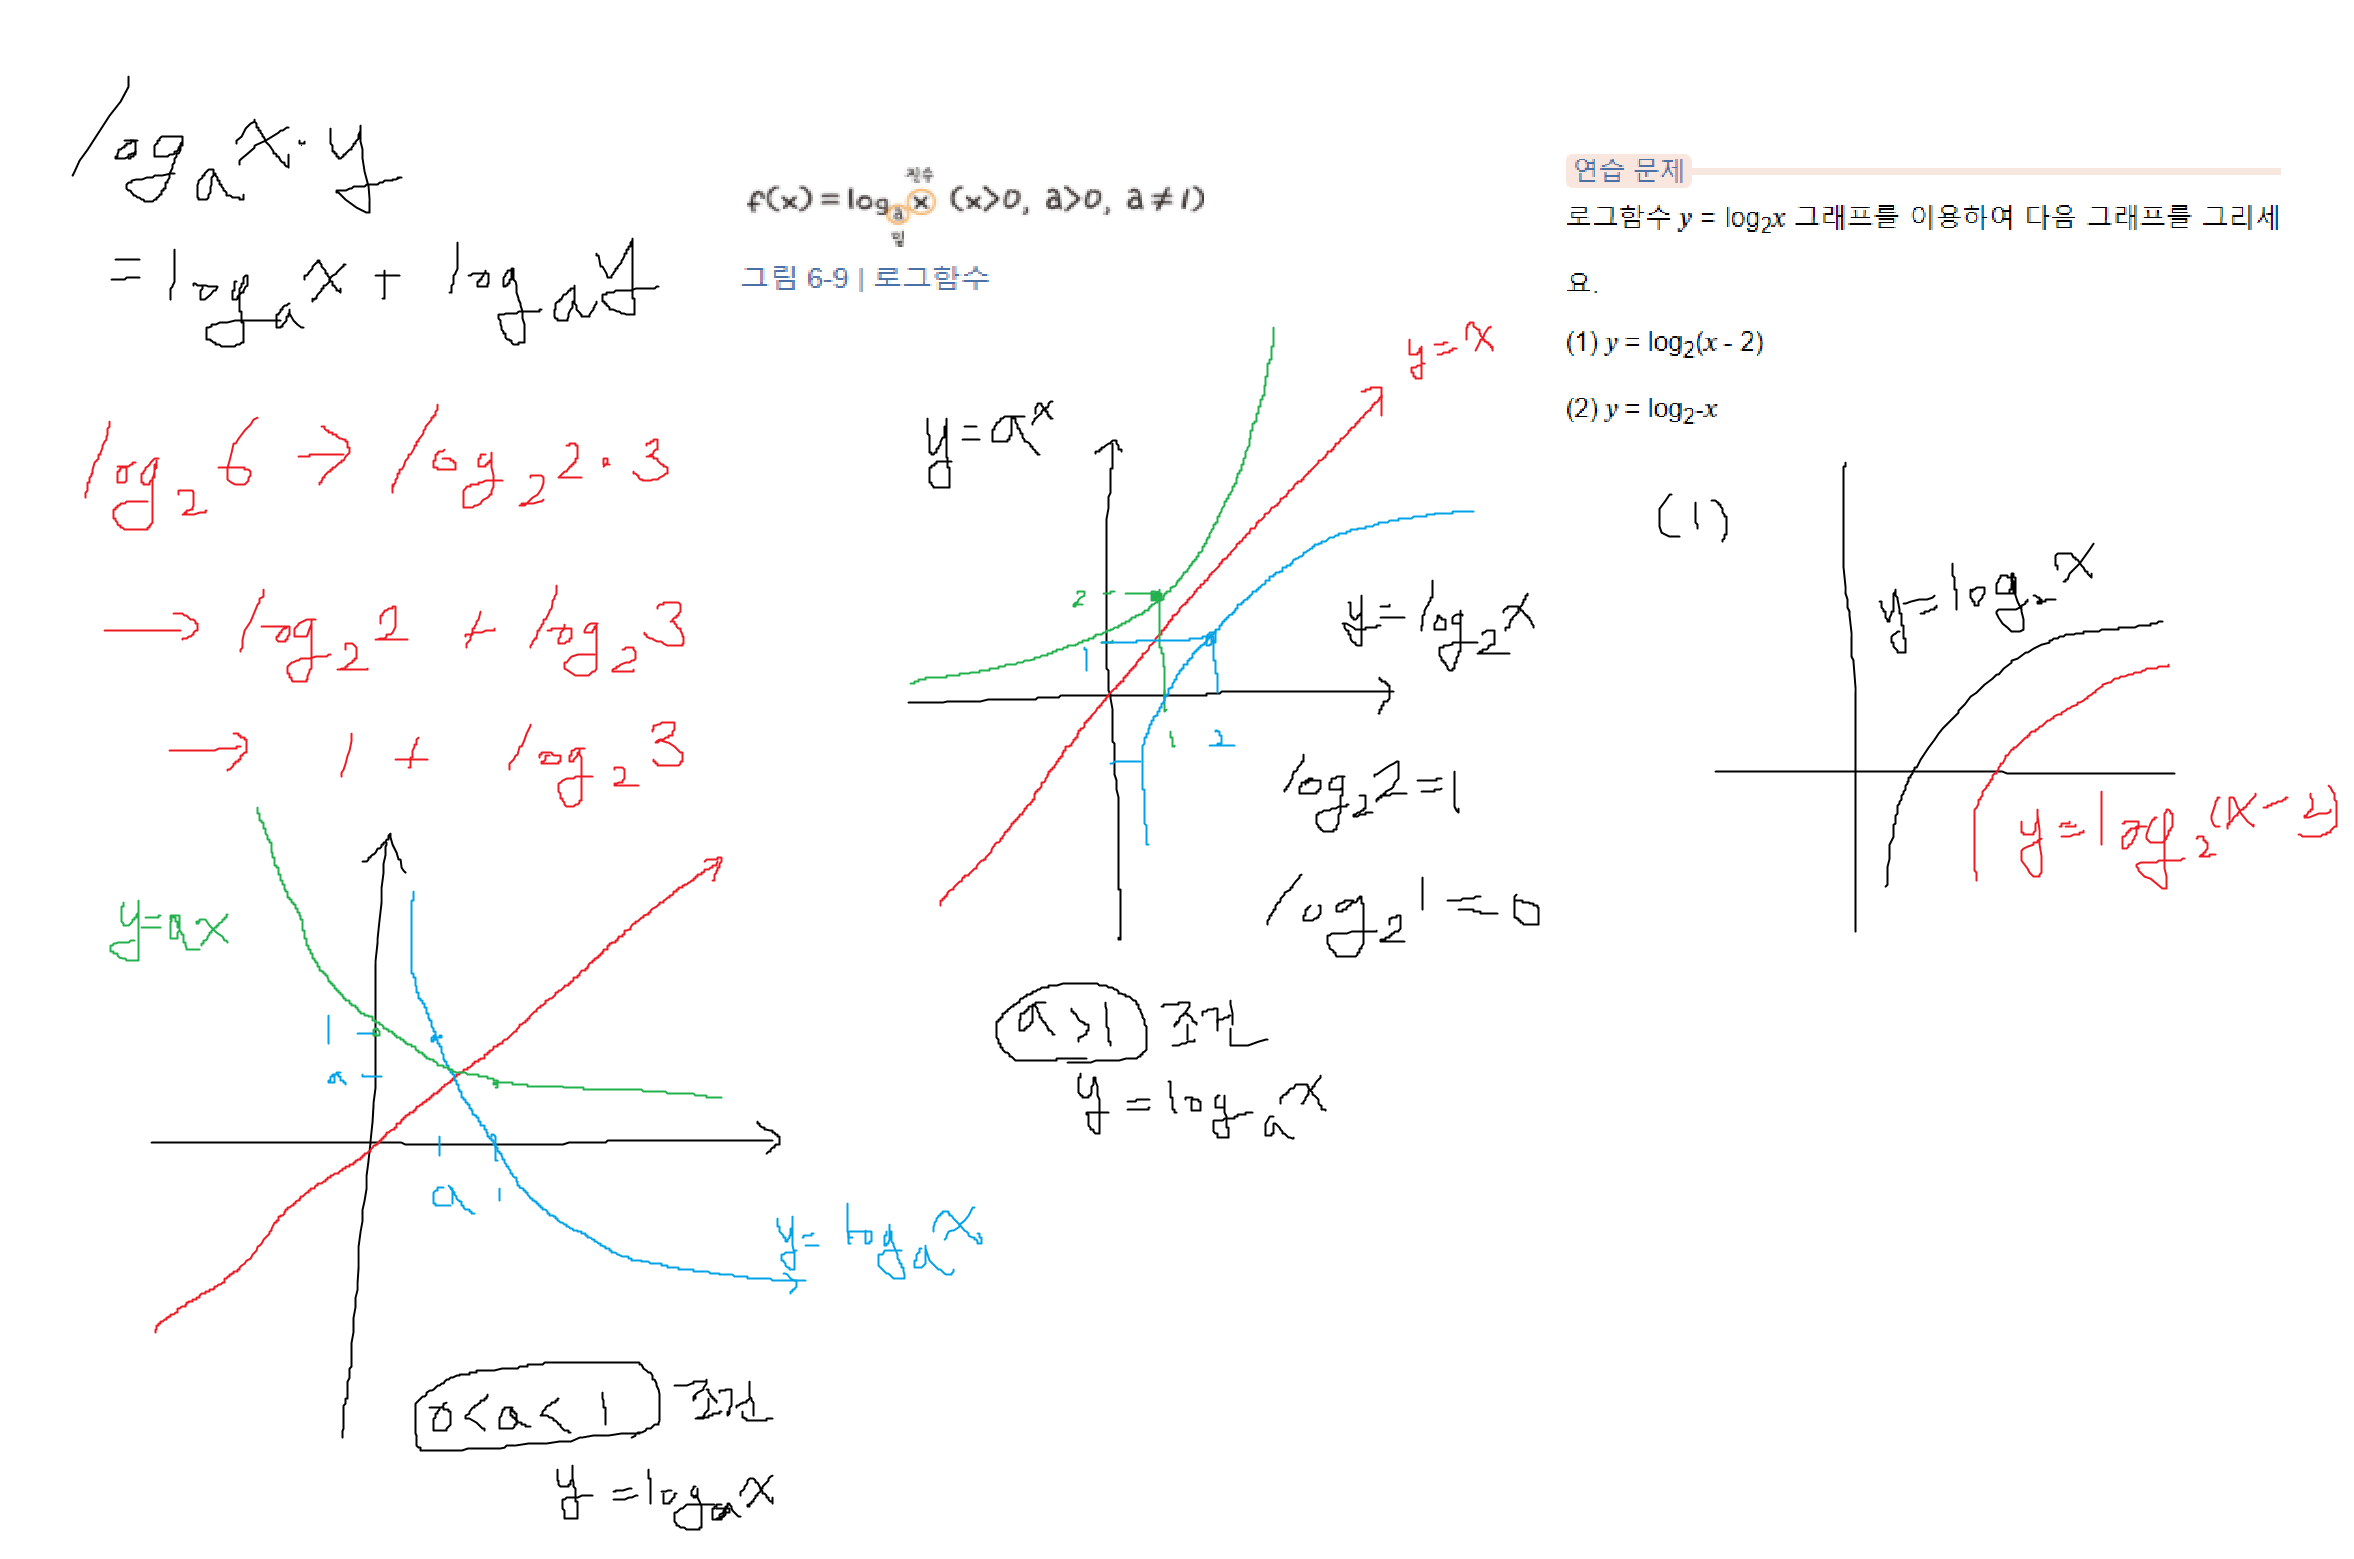 logₐx·y
=logₐx + logₐy
log₂6 → log₂2·3
→ log₂2 + log₂3
→ 1 + log₂3
y=ax
1
a
a 1
y=logₐx
0<a<1 조건
y=logₐx
진수
f(x)=logₐx (x>0, a>0, a≠1)
밑
그림 6-9 | 로그함수
y=x
y=aˣ
2
1
y=log₂x
1 2
log₂2=1
log₂1=0
a>1 조건
y=logₐx
연습 문제
로그함수 y = log₂x 그래프를 이용하여 다음 그래프를 그리세
요.
(1) y = log₂(x - 2)
(2) y = log₂-x
(1)
y=log₂x
y=log₂(x-2)